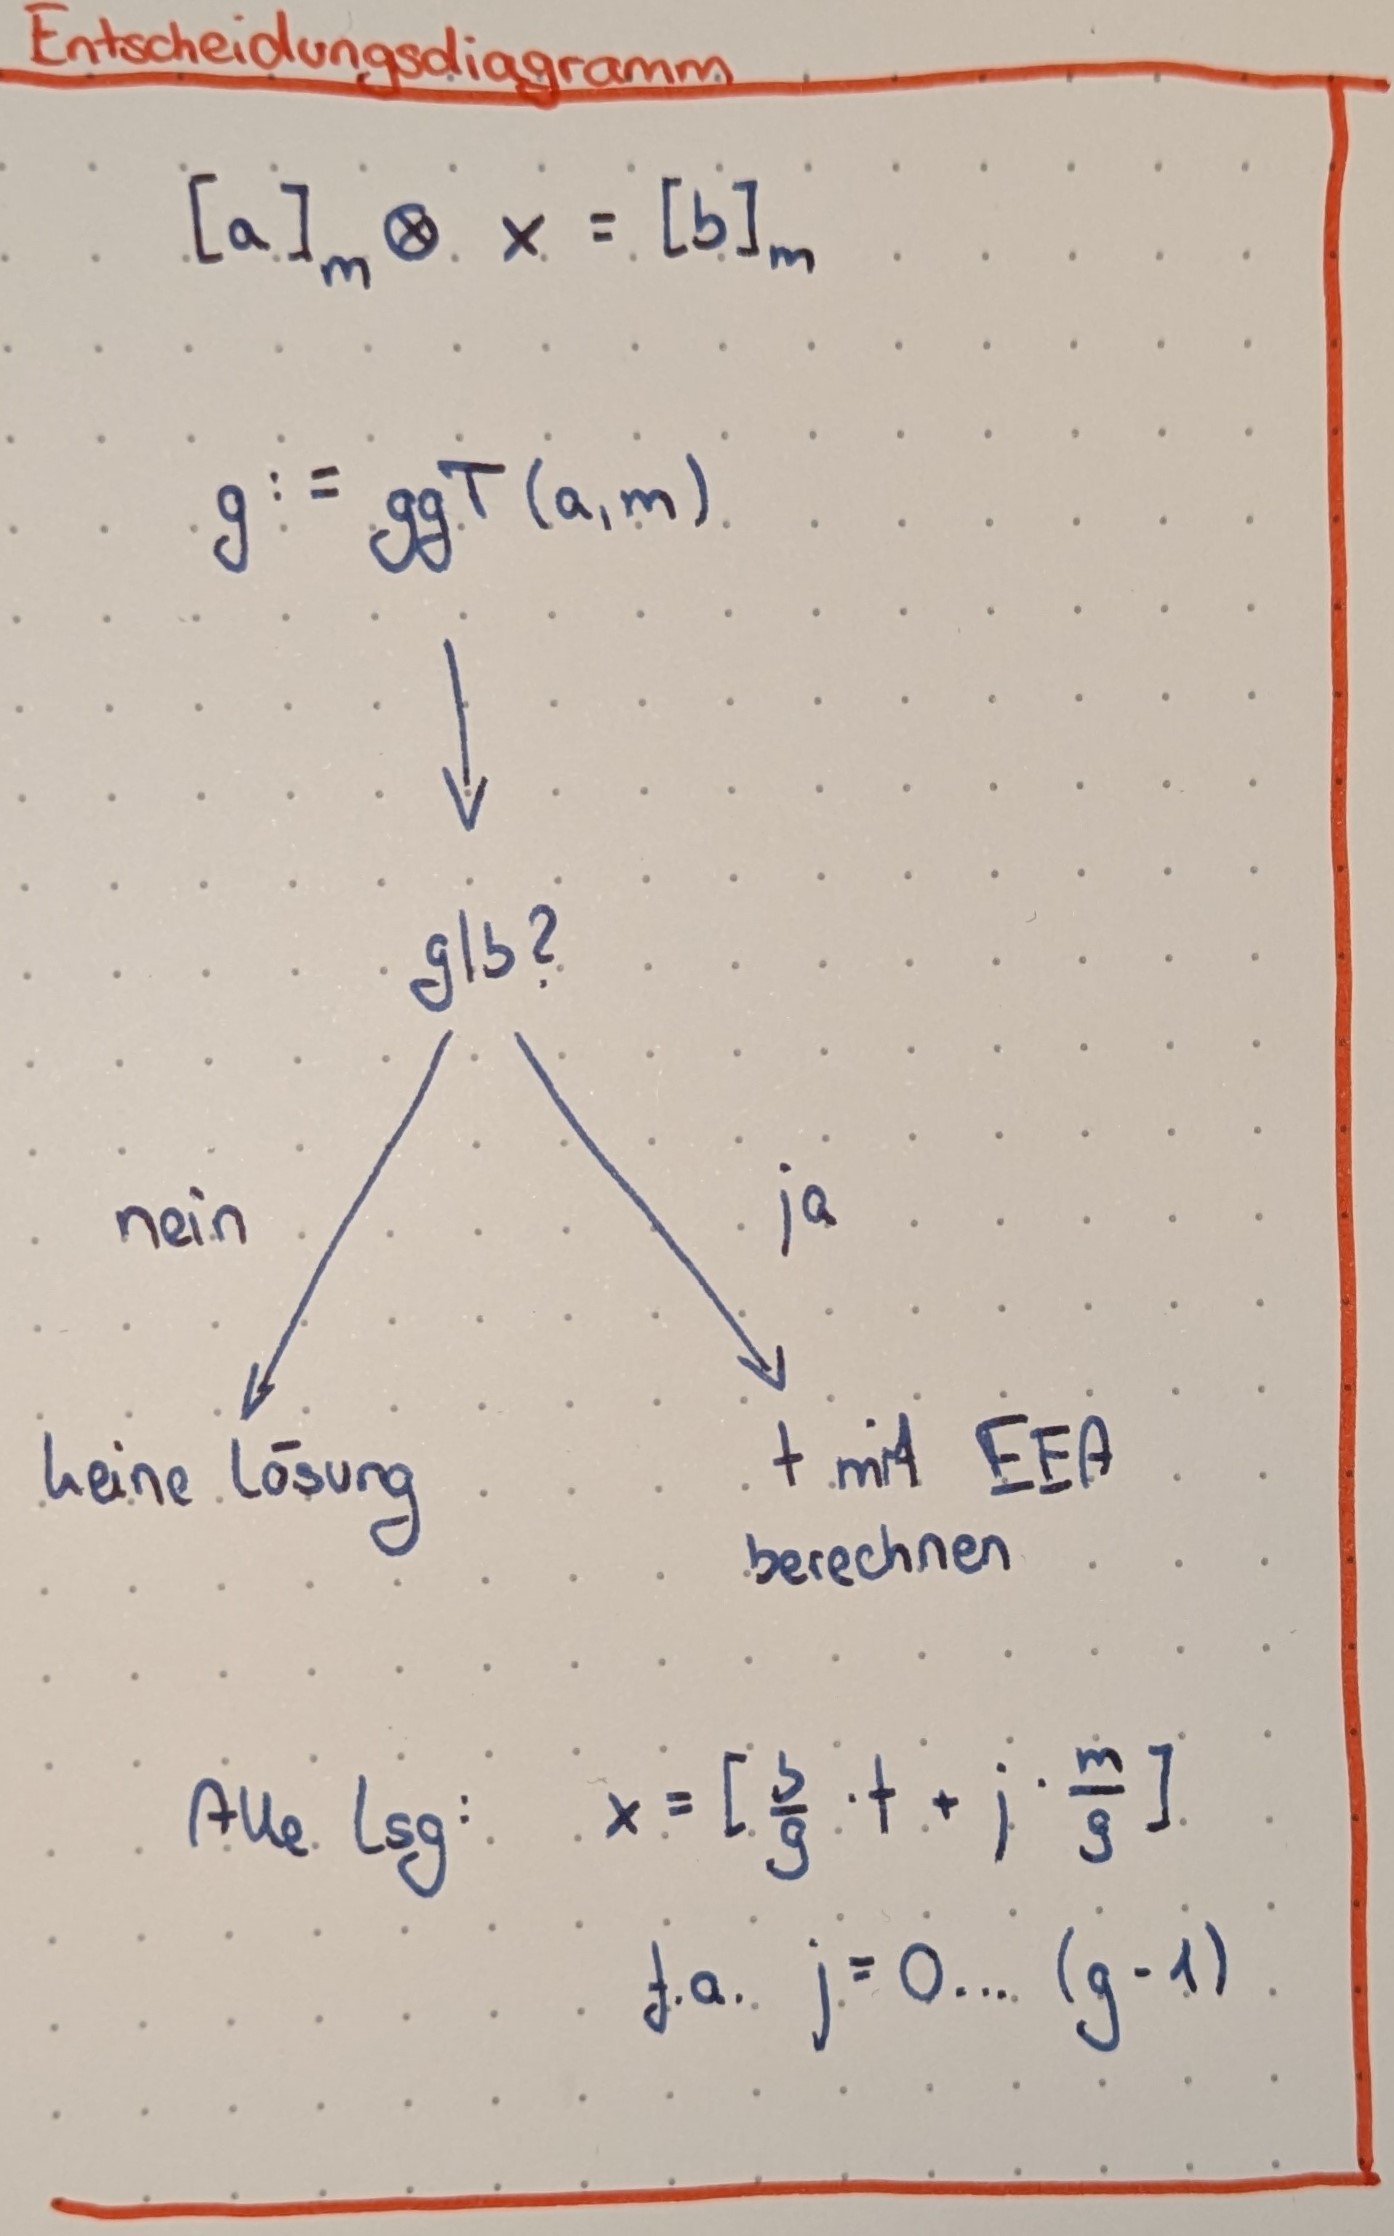 Entscheidungsdiagramm
[a]ₘ ⊗ x = [b]ₘ
g := ggT (a,m)
g|b?
nein ja
keine Lösung
t mit EEA
berechnen
Alle Lsg: x = [b/g · t + j · m/g]
f.a. j = 0... (g-1)